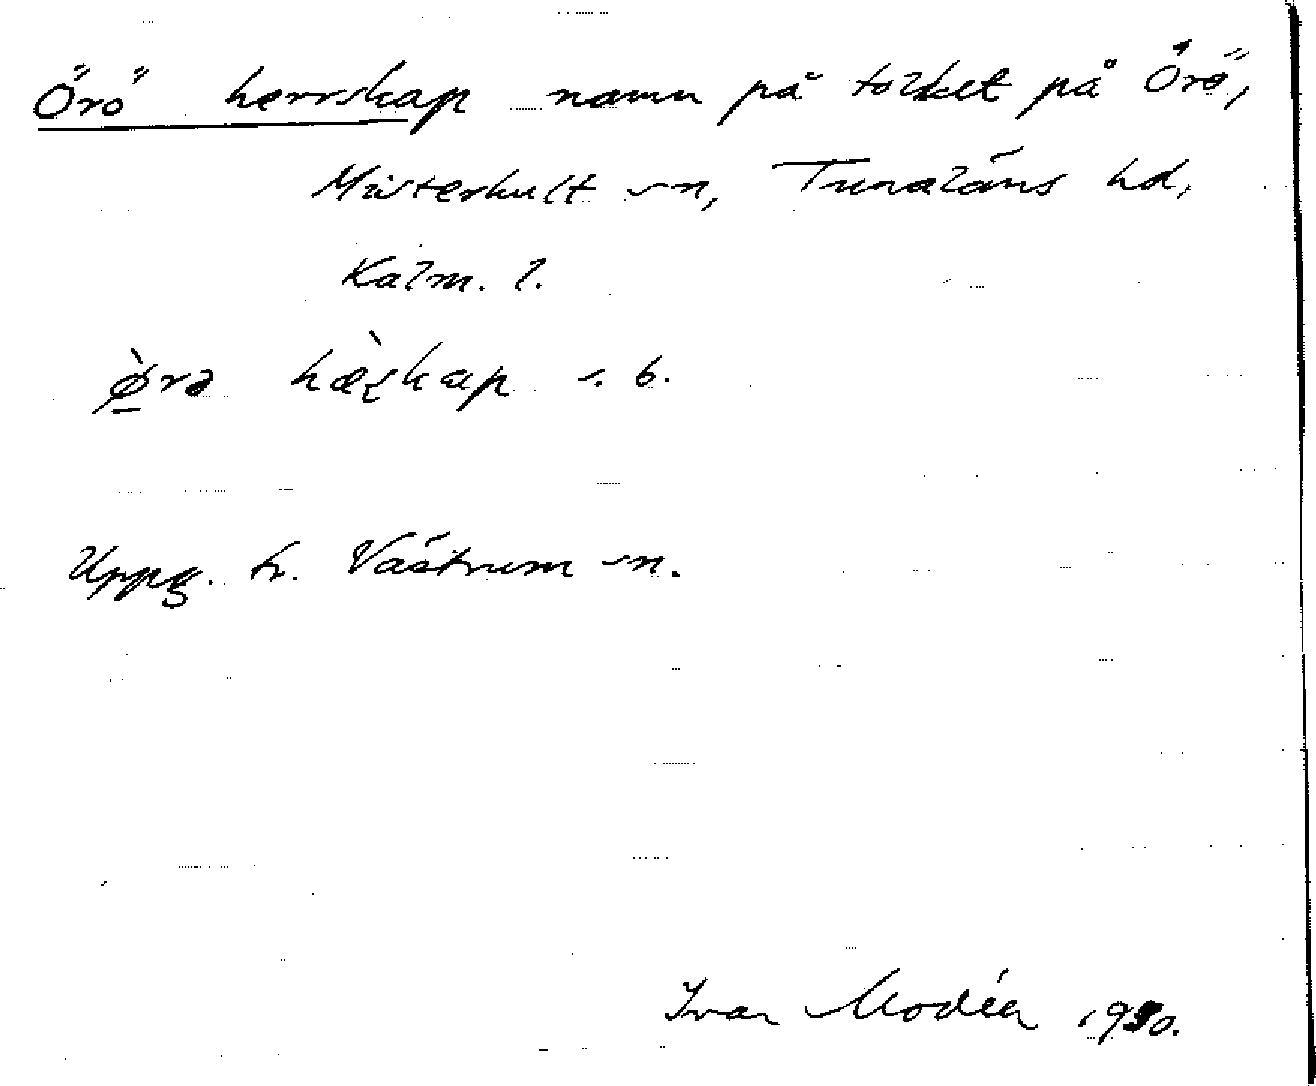 Örö herrskap namn på folket på Örö,
Misterhult sn, Tunaläns hd,
Kalm. l.
hæ̀ʂkap s. b.
Uppg. fr. Västrum sn.
Ivar Modéer